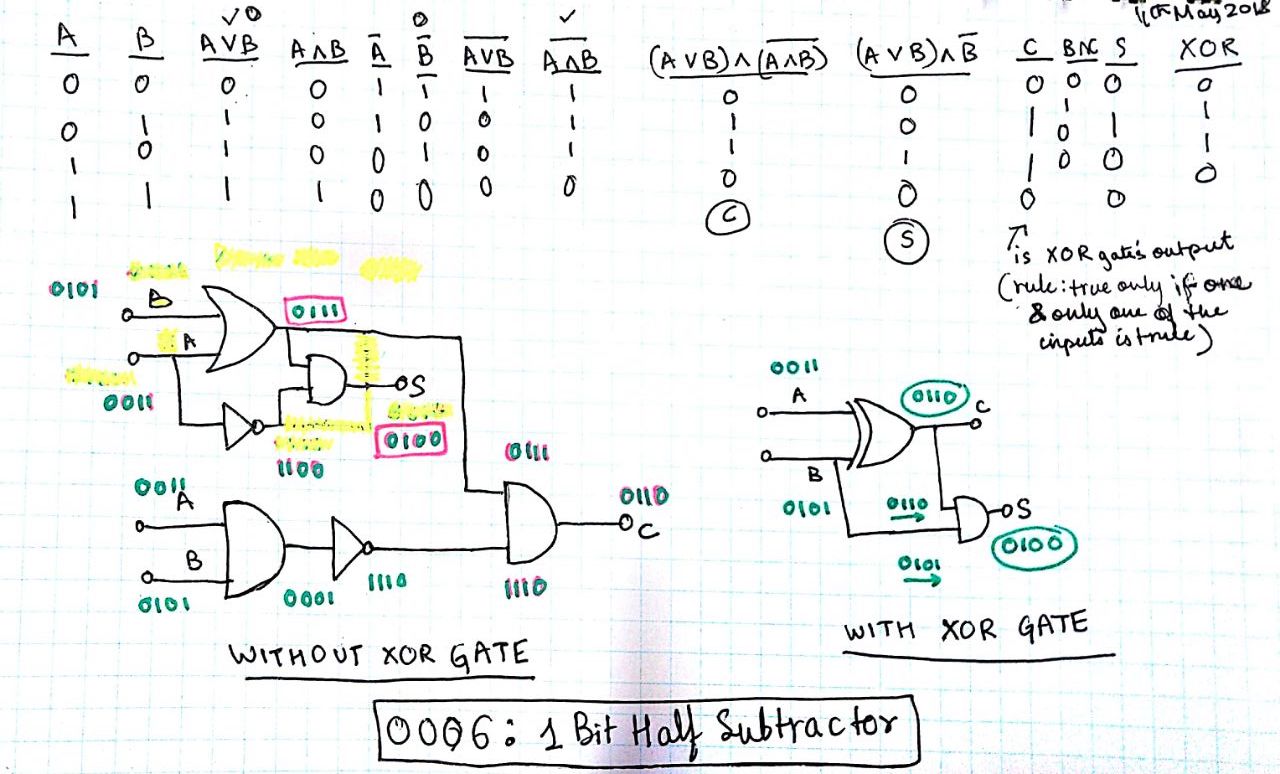 11th May 2018
✓ 0 0 ✓
A B A∨B A∧B A̅ B̅ A̅∨̅B̅ A̅∧̅B̅ (A∨B)∧(A̅∧̅B̅) (A∨B)∧B̅ C B∧C S XOR
0 0 0 0 1 1 1 1 0 0 0 0 0 0
0 1 1 0 1 0 0 1 1 0 1 1 1 1
1 0 1 0 0 1 0 1 1 1 1 0 0 1
1 1 1 1 0 0 0 0 0 0 0 0 0 0
C S
↑
is XOR gate's output
(rule: true only if one
& only one of the
inputs is true)
0101
B
0111
A
0011
S
0100
1100
0011
A
B
0101
0001
1110
0111
1110
0110
C
WITHOUT XOR GATE
0011
A
0110
C
B
0101
0110
→
S
0100
0101
→
WITH XOR GATE
0006: 1 Bit Half Subtractor